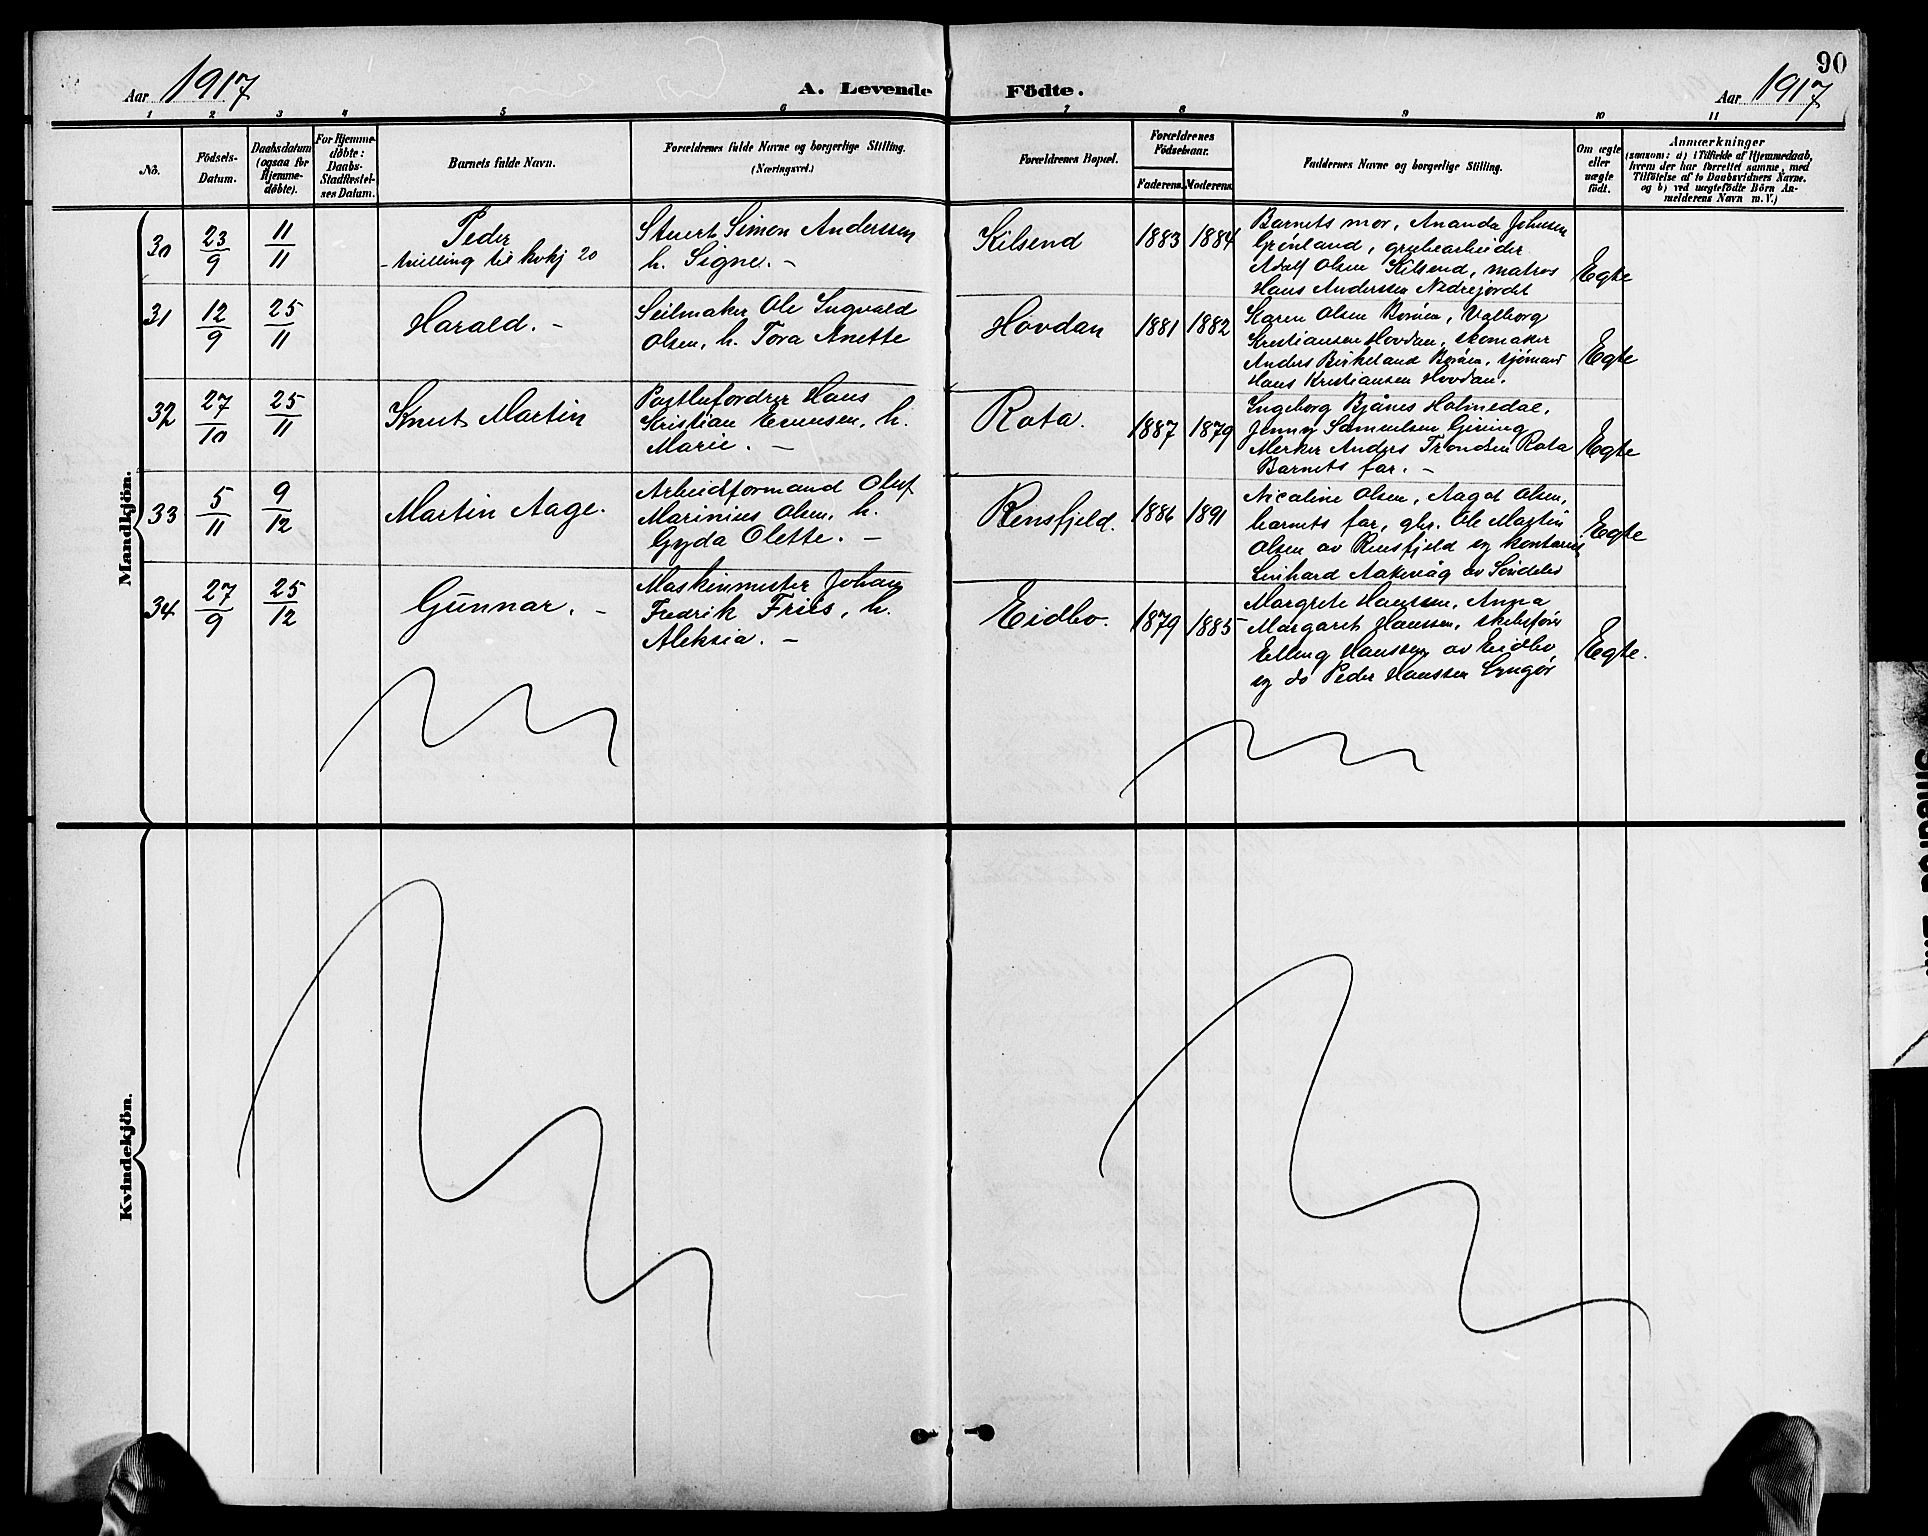 90
Aar 1917
A. Levende Födte.
Aar 1917
1 2 3 4 5 6 7 8 9 10 11
No.
Födsels-
Datum.
Daabsdatum
(ogsaa for
Hjemme-
döbte).
For Hjemme-
döbte:
Daabs-
Stadfæstel-
ses Datum.
Barnets fulde Navn.
Forældrenes fulde Navne og borgerlige Stilling.
(Næringsvei.)
Forældrenes Bopæl.
Forældrenes
Födselsaar.
Faderens. Moderens.
Faddernes Navne og borgerlige Stilling.
Om ægte
eller
uægte
födt.
Anmærkninger
(saasom: a) i Tilfælde af Hjemmedaab,
hvem der har forrettet samme, med
Tilföielse af to Daabsvidners Navne.
og b) ved uægtefödte Börn An-
melderens Navn m. V.)
Mandkjön.
30
23/9
11/11
Peder
- tvilling til kvkj 20
Stuert Simon Anderssen
h. Signe. -
Kilsend
1883 1884
Barnets mor, Ananda Johnsen
Grønland, grubearbeider
Adolf Olsen Kilsend, matros
Hans Anderssen Nedrejordet
Egte
31
12/9
25/11
Harald. -
Seilmaker Ole Ingvald
Olsen, h. Tora Anette
Hovdan
1881 1882
Karen Olsen Borøen, Valborg
Kristiansen Hovdan, skomaker
Anders Birkeland Borøen, sjömand
Hans Kristiansen Hovdan.
Egte
32
27/10
25/11
Knut Martin
Postbefordrer Hans
Kristian Evensen, h.
Marie. -
Rota.
1887 1879
Ingeborg Bjånes Holmedal,
Jenny Samuelsen Giving
Merker Anders Trondsen Rota
Barnets far. -
Egte
33
5/11
9/12
Martin Aage.
Arbeidformand Oluf
Marinius Olsen, h.
Gyda Olette. -
Rensfjeld.
1886 1891
Nicoline Olsen, Aagot Olsen,
barnets far, gbr. Ole Martin
Olsen av Rensfjeld og kontorist
Linhard Aakevåg av Söndeled
Egte
34
27/9
25/12
Gunnar. -
Maskinmester Johan
Fredrik Friis, h.
Aleksia. -
Eidbo.
1879 1885
Margrete Hanssen, Anna
Margaret Hanssen, skibsförer
Elling Hanssen av Eidbo,
og do Peder Hanssen Lyngör
Egte.
Kvindekjön.